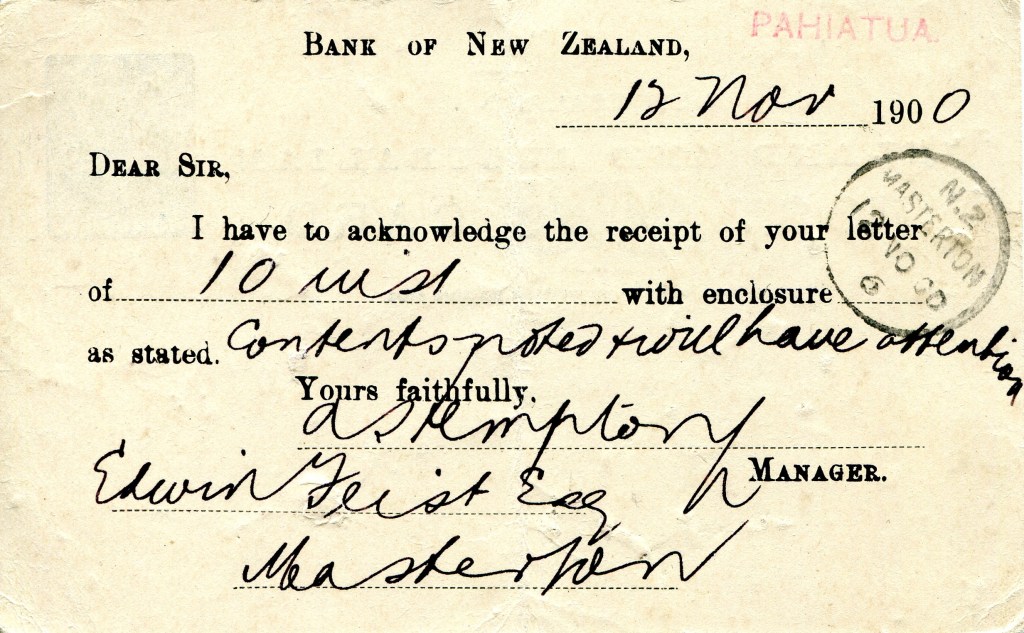 PAHIATUA.
BANK OF NEW ZEALAND,
12 Nov 1900
DEAR SIR,
I have to acknowledge the receipt of your letter
of 10 inst with enclosure
as stated. Contents noted & will have attention
Yours faithfully,
MANAGER.
Edwin Feist Esq
Masterton
N.Z
MASTERTON
12 NO 00
6